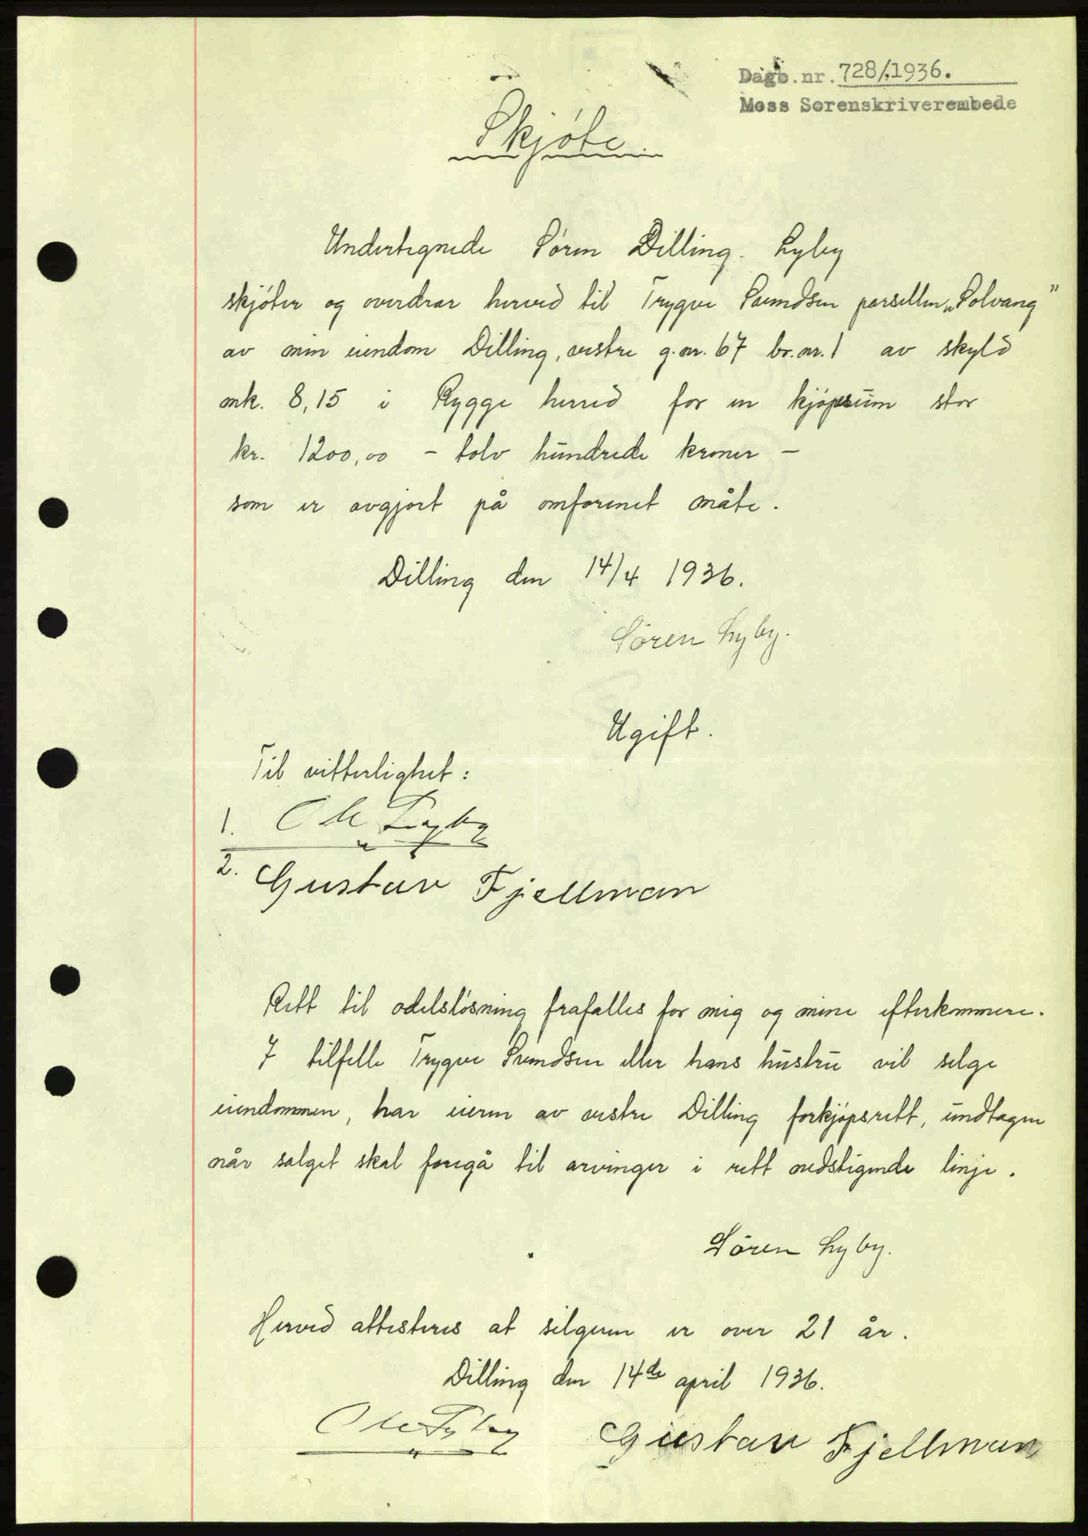 Dagb.nr. 728/1936.
Moss Sorenskriverembede
Skjøte.
Undertegnede Søren Dilling. Lyby
skjøter og overdrar herved til Trygve Svendsen parsellen „Solvang”
av min eiendom Dilling, vestre g.nr. 67 br.nr. 1 av skyld
mk. 8,15 i Rygge herred for en kjøpesum stor
kr. 1200,00 – tolv hundrede kroner –
som er avgjort på omforenet måte.
Dilling den 14/4 1936.
Søren Lyby.
Ugift.
Til vitterlighet:
1. Ole Lyby
2. Gustav Fjellman
Rett til odelsløsning frafalles for mig og mine efterkommere.
I tilfelle Trygve Svendsen eller hans hustru vil selge
eiendommen, har eieren av vestre Dilling forkjøpsrett, undtagen
når salget skal foregå til arvinger i rett nedstigende linje.
Søren Lyby.
Herved attesteres at selgeren er over 21 år.
Dilling den 14de april 1936.
Ole Lyby Gustav Fjellman